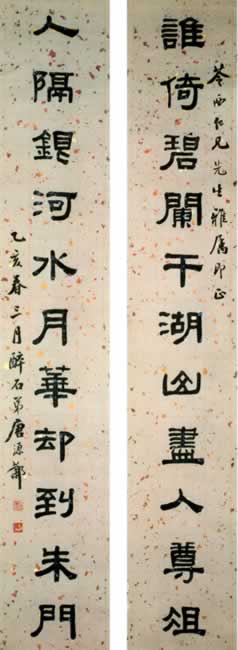 苓西仁兄先生雅屬即正
誰倚碧闌干湖山盡入尊俎
人隔銀河水月華却到朱門
乙亥春三月醉石弟唐源鄴